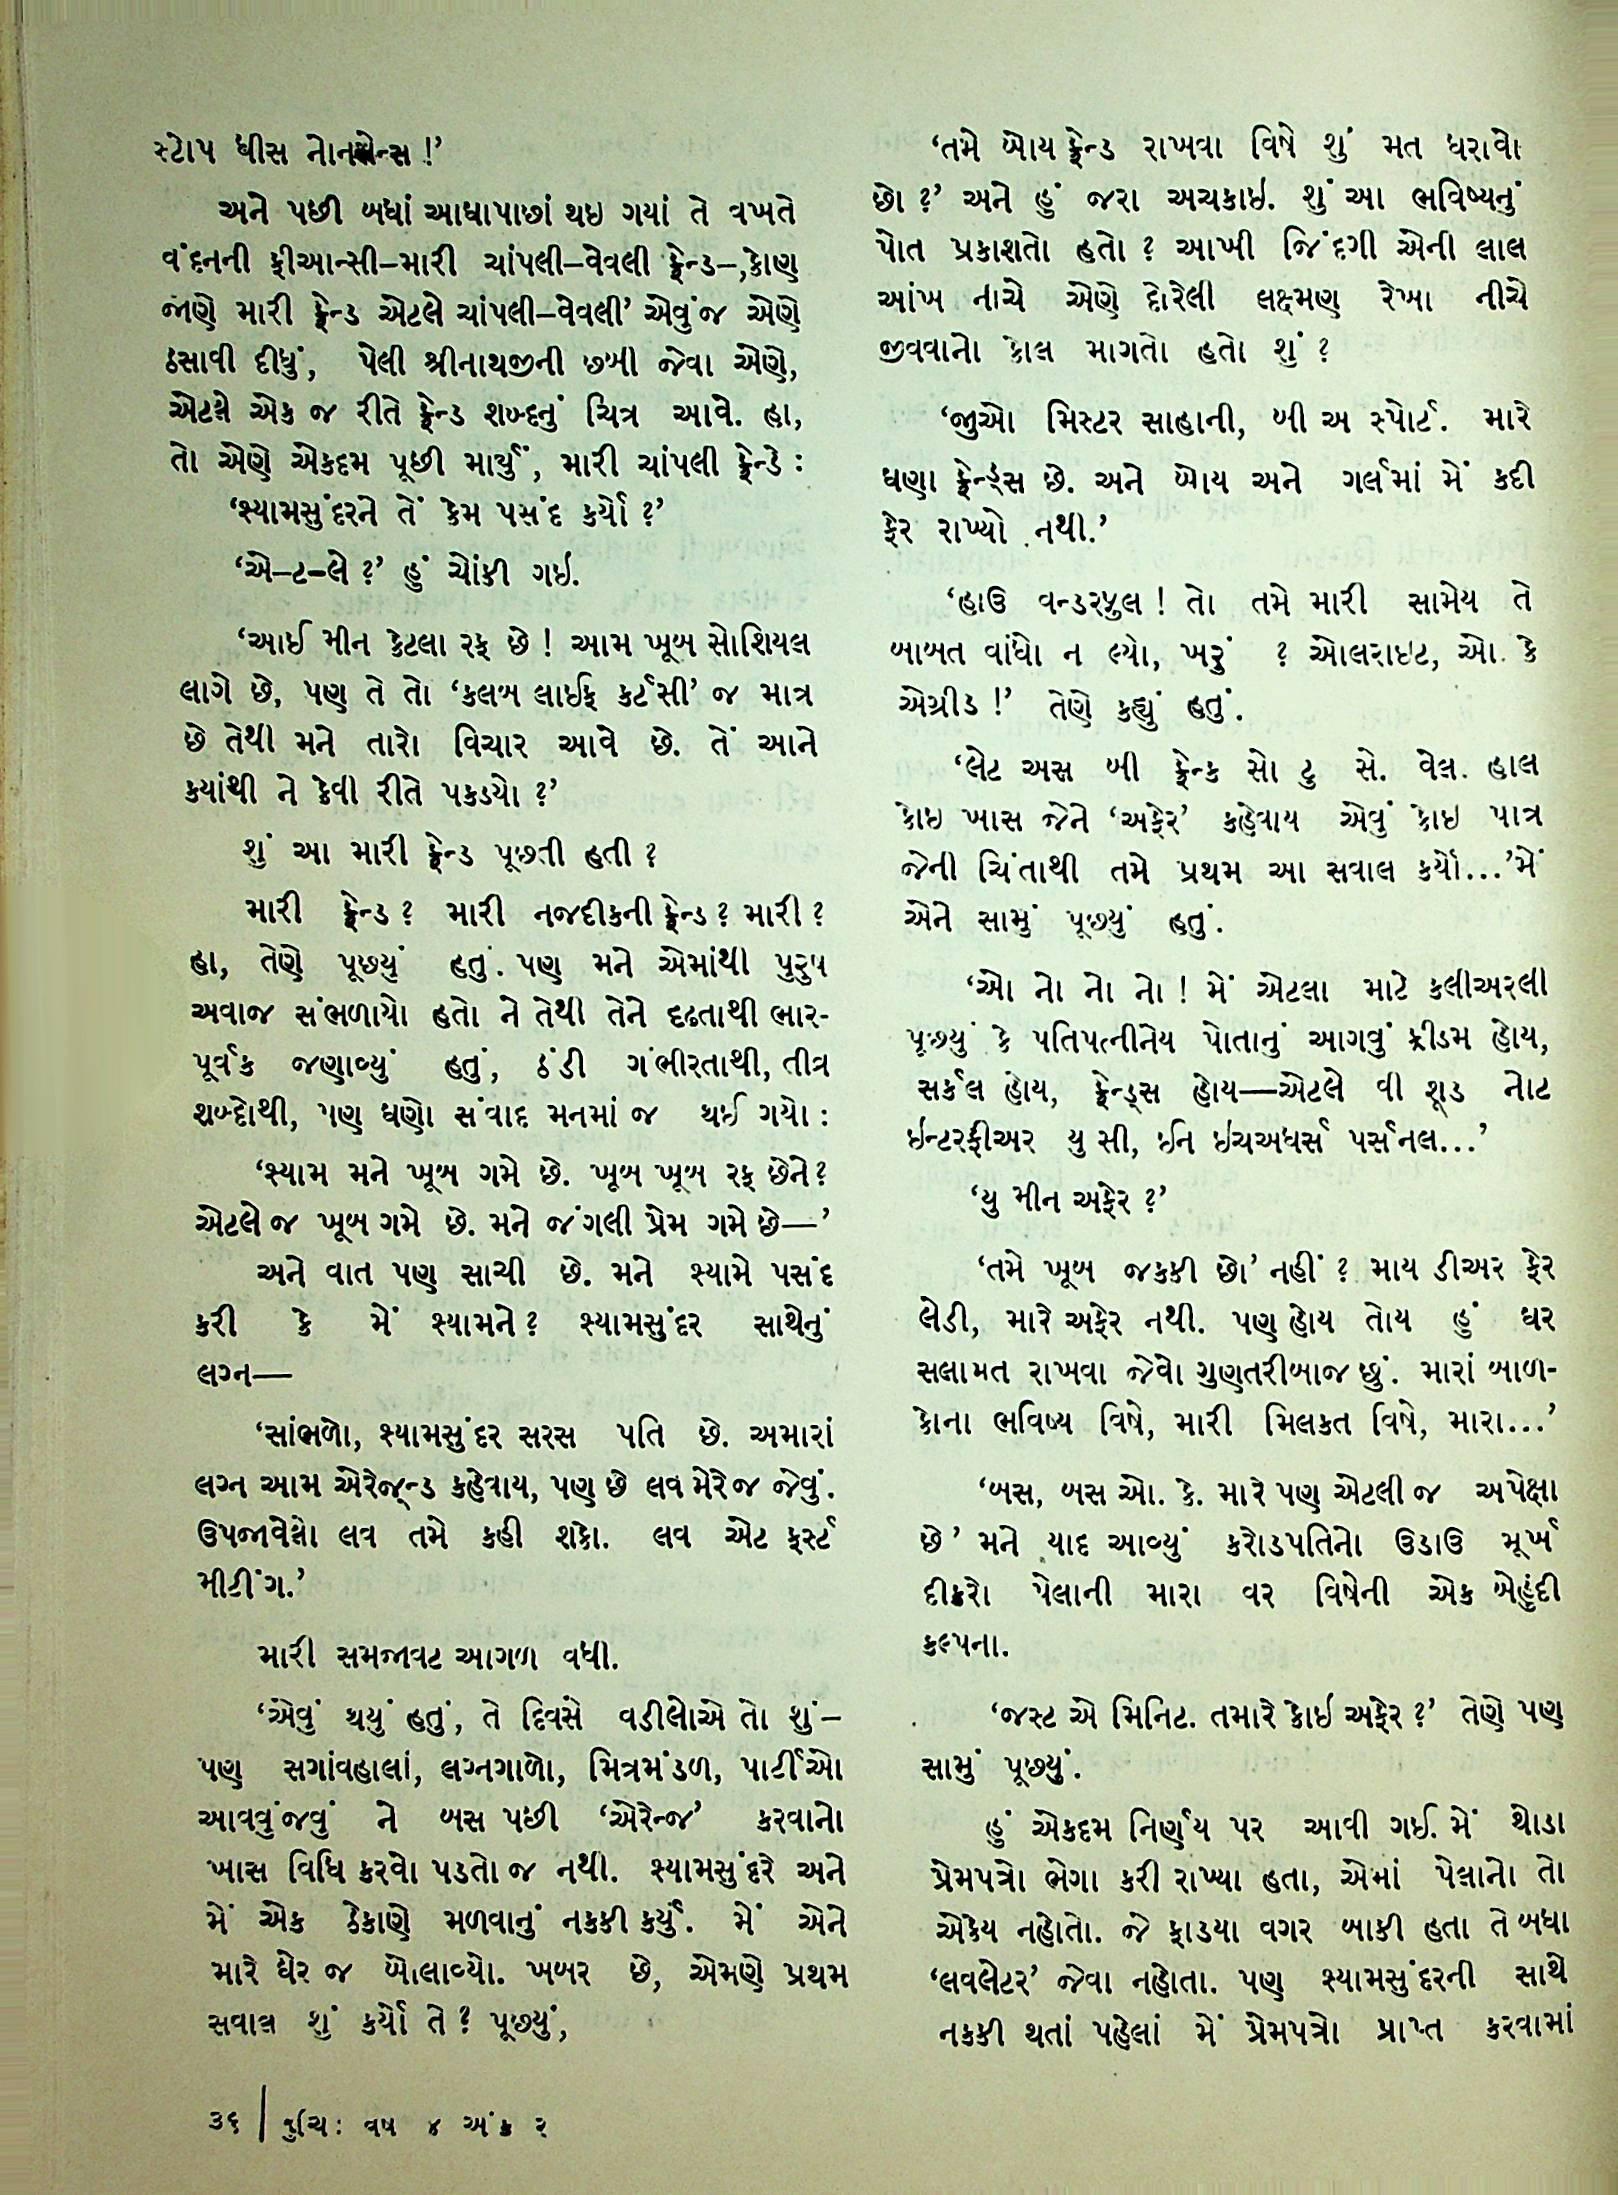 સ્ટોપ ધીસ નોનસેન્સ !’
અને પછી બધાં આઘાપાછાં થઇ ગયાં તે વખતે
વંદનની ફીઆન્સી–મારી ચાંપલી–વેવલી ફ્રેન્ડ–,કોણ
જાણે મારી ફ્રેન્ડ એટલે ચાંપલી–વેવલી’ એવુંજ એણે
ઠસાવી દીધું, પેલી શ્રીનાથજીની છબી જેવા એણે,
એટલે એક જ રીતે ફ્રેન્ડ શબ્દનું ચિત્ર આવે. હા,
તો એણે એકદમ પૂછી માર્યું, મારી ચાંપલી ફ્રેન્ડે :
‘શ્યામસુંદરને તેં કેમ પસંદ કર્યો ?’
‘એ–ટ–લે ?’ હું ચોંકી ગઇ.
‘આઈ મીન કેટલા રફ છે ! આમ ખૂબ સોશિયલ
લાગે છે, પણ તે તો ‘કલબ લાઈફ કર્ટસી’ જ માત્ર
છે તેથી મને તારો વિચાર આવે છે. તેં આને
કયાંથી ને કેવી રીતે પકડયો ?’
શું આ મારી ફ્રેન્ડ પૂછતી હતી ?
મારી ફ્રેન્ડ ? મારી નજદીકની ફ્રેન્ડ ? મારી ?
હા, તેણે પૂછયું હતું. પણ મને એમાંથી પુરુષ
અવાજ સંભળાયો હતો ને તેથી તેને દૃઢતાથી ભાર-
પૂર્વક જણાવ્યું હતું, ઠંડી ગંભીરતાથી, તીવ્ર
શબ્દોથી, પણ ઘણો સંવાદ મનમાં જ થઈ ગયો :
‘શ્યામ મને ખૂબ ગમે છે. ખૂબ ખૂબ રફ છેને ?
એટલે જ ખૂબ ગમે છે. મને જંગલી પ્રેમ ગમે છે—’
અને વાત પણ સાચી છે. મને શ્યામે પસંદ
કરી કે મેં શ્યામને ? શ્યામસુંદર સાથેનું
લગ્ન—
‘સાંભળો, શ્યામસુંદર સરસ પતિ છે. અમારાં
લગ્ન આમ એરેજૂન્ડ કહેવાય, પણ છે લવ મેરેજ જેવું.
ઉપજાવેલો લવ તમે કહી શકો. લવ એટ ફર્સ્ટ
મીટીંગ.’
મારી સમજાવટ આગળ વધી.
‘એવું થયું હતું, તે દિવસે વડીલોએ તો શું–
પણ સગાંવહાલાં, લગ્નગાળો, મિત્રમંડળ, પાર્ટીઓ
આવવુંજવું ને બસ પછી ‘એરેન્જ’ કરવાનો
ખાસ વિધિ કરવો પડતો જ નથી. શ્યામસુંદરે અને
મેં એક ઠેકાણે મળવાનું નકકી કર્યું. મેં એને
મારે ઘેર જ બોલાવ્યો. ખબર છે, એમણે પ્રથમ
સવાલ શું કર્યો તે ? પૂછયું,
‘તમે બોય ફ્રેન્ડ રાખવા વિષે શું મત ધરાવો
છો ?’ અને હું જરા અચકાઇ. શું આ ભવિષ્યનું
પોત પ્રકાશતો હતો ? આખી જિંદગી એની લાલ
આંખ નીચે એણે દોરેલી લક્ષ્મણ રેખા નીચે
જીવવાનો કોલ માગતો હતો શું ?
‘જુઓ મિસ્ટર સાહાની, બી અ સ્પોર્ટ. મારે
ઘણા ફ્રેન્ડ્સ છે. અને બોય અને ગર્લમાં મેં કદી
ફેર રાખ્યો નથી.’
‘હાઉ વન્ડરફુલ ! તો તમે મારી સામેય તે
બાબત વાંધો ન લ્યો, ખરું ? ઓલરાઇટ, ઓ. કે
એગ્રીડ !’ તેણે કહ્યું હતું.
‘લેટ અસ બી ફ્રેન્ક સો ટુ સે. વેલ. હાલ
કોઇ ખાસ જેને ‘અફેર’ કહેવાય એવું કોઇ પાત્ર
જેની ચિંતાથી તમે પ્રથમ આ સવાલ કર્યો...’મેં
એને સામું પૂછ્યું હતું.
‘ઓ નો નો નો ! મેં એટલા માટે કલીઅરલી
પૂછયું કે પતિપત્નીનેય પોતાનું આગવું ફ્રીડમ હોય,
સર્કલ હોય, ફ્રેન્ડ્સ હોય—એટલે વી શૂડ નોટ
ઇન્ટરફીઅર યુ સી, ઈન ઇચઅધર્સ પર્સનલ...’
‘યુ મીન અફેર ?’
‘તમે ખૂબ જકકી છો’ નહીં ? માય ડીઅર ફેર
લેડી, મારે અફેર નથી. પણ હોય તોય હું ઘર
સલામત રાખવા જેવો ગુણતરીબાજ છું. મારાં બાળ-
કોના ભવિષ્ય વિષે, મારી મિલકત વિષે, મારા...’
‘બસ, બસ ઓ. કે. મારે પણ એટલી જ અપેક્ષા
છે ’ મને યાદ આવ્યું કરોડપતિનો ઉડાઉ મૂર્ખ
દીકરો પેલાની મારા વર વિષેની એક બેહુંદી
કલ્પના.
‘જસ્ટ એ મિનિટ. તમારે કોઇ અફેર ?’ તેણે પણ
સામું પૂછ્યું.
હું એકદમ નિર્ણય પર આવી ગઈ. મેં થોડા
પ્રેમપત્રો ભેગા કરી રાખ્યા હતા, એમાં પેલાનો તો
એકેય નહોતો. જે ફાડયા વગર બાકી હતા તે બધા
‘લવલેટર’ જેવા નહોતા. પણ શ્યામસુંદરની સાથે
નકકી થતાં પહેલાં મેં પ્રેમપત્રો પ્રાપ્ત કરવામાં
૩૬ | રુચિ : વર્ષ ૪ અંક ૨